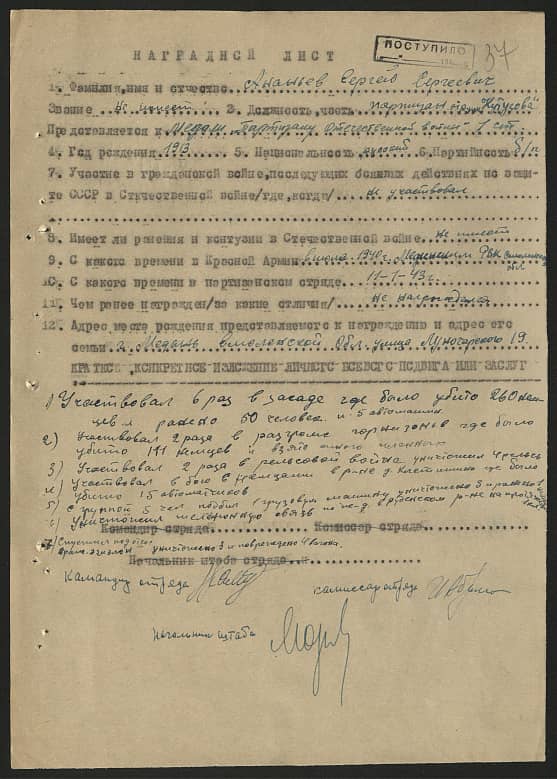 ПОСТУПИЛО
37
НАГРАДНОЙ ЛИСТ
1. Фамилия, имя и отчество Ананьев Сергей Сергеевич
Звание не имеет 3. Должность, часть партизан
Представляется к Медали "Партизану Отечественной войны" 1 ст.
4. Год рождения 1913 5. Национальность русский 6. Партийность б/п
7. Участие в гражданской войне, последующих боевых действиях по защи-
те СССР в Отечественной войне/где, когда/ не участвовал
8. Имеет ли ранения и контузии в Отечественной войне не имеет
9. С какого времени в Красной Армии 1940 г. РВК
10. С какого времени в партизанском отряде 11-1-43 г.
11. Чем ранее награжден/за какие отличия/ не награждался
12. Адрес места рождения представляемого к награждению и адрес его
семьи г. Медынь Смоленской обл. улица Луначарского 19
КРАТКОЕ КОНКРЕТНОЕ ИЗЛОЖЕНИЕ ЛИЧНОГО БОЕВОГО ПОДВИГА ИЛИ ЗАСЛУГ
1) Участвовал 6 раз в засаде где было убито нем-
цев и ранено 50 человек и 5 автомашин
2) Участвовал 2 раза в разгроме гарнизонов где было
убито 111 немцев и взято много пленных
3) Участвовал 2 раза в рельсовой война уничтожил рельс
4) Участвовал в бою с немцами в р-не д. было
убито 15 автоматчиков
5) С группой 5 чел подбил 1 грузовую машину уничтожено 3 и ранено 1
6) Уничтожил связь по ж-д. р-не
Командир отряда Комиссар отряда
7) уничтожено 3 и повреждено 4 вагона.
Начальник штаба отряда
Командир отряда
комиссар отряда
Начальник штаба